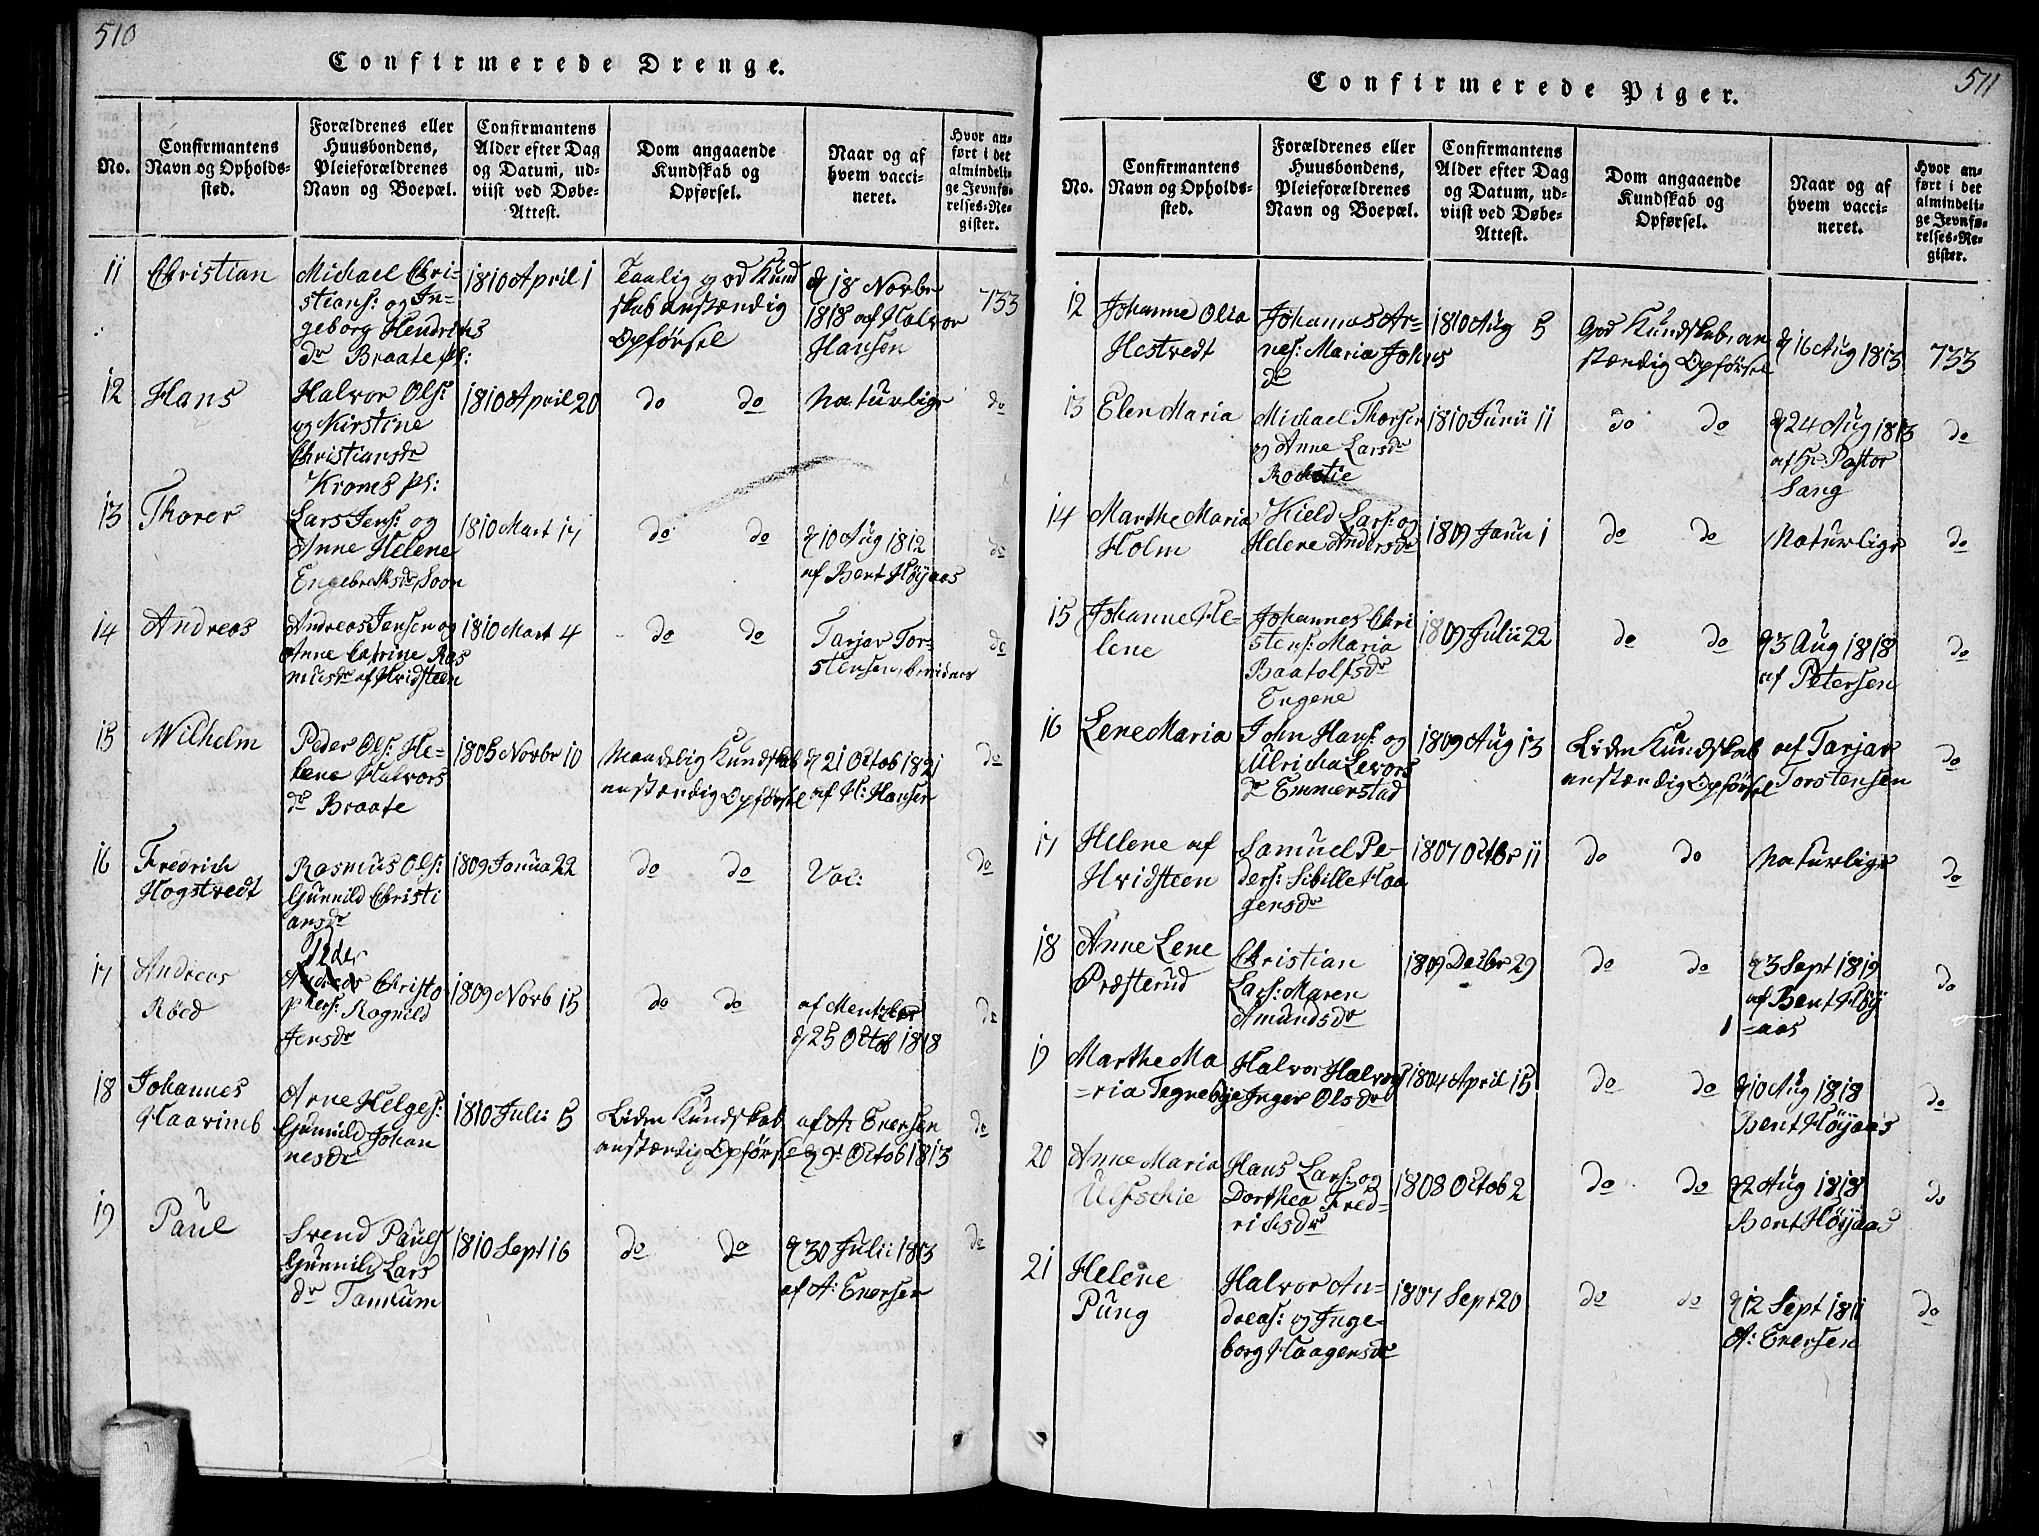 510
Confirmerede Drenge.
No.
Confirmantens
Navn og Opholds-
sted.
Forældrenes eller
Huusbondens,
Pleieforældrenes
Navn og Boepæl.
Confirmantens
Alder efter Dag
og Datum, ud-
viist ved Døbe-
Attest.
Dom angaaende
Kundskab og
Opførsel.
Naar og af
hvem vacci-
neret.
Hvor an-
ført i det
almindeli-
ge Jevnfø-
relses-Re-
gister.
11
Christian
Michael Chri-
stians: og In-
geborg Hendriks
dr Braate pl:
1810 April 1
Taalig god Kund
skab anstændig
Opførsel
d 18 Novbr
1818 af Halvor
Hansen
733
12
Hans
Halvor Ols:
og Kirstine
Christiansdr
Kroms pl:
1810 April 20
do do
Naturlige
do
13
Thorer
Lars Jens: og
Anne Helene
Engebretsdr Soon
1810 Mart 17
do do
d 10 Aug 1812
af Bent Høyaas
do
14
Andreas
Andreas Jensen og
Anne Catrine Ras
musdr af Hvidsteen
1810 Mart 4
do do
Tarjar Tor-
stensen
do
15
Wilhelm
Peder Ols: He-
lene Halvors
dr Braate
1805 Novbr 10
Maadelig Kundskab
anstændig Opførsel
d 21 Octob 1821
af H: Hansen
do
16
Fredrich
Hogstvedt
Rasmus Ols:
Gunnild Christi
ansdr
1809 Janua 22
do do
Vac:
do
17
Andreas
Röed
Peder
Andreas Christo
phers: Rognild
Jensdr
1809 Novb 15
do do
af Mentzler
d 25 Octob 1818
do
18
Johannes
Haavimb
Arne Helges:
Gunnild Johan
nesdr
1810 Julii 5
Liden Kundskab
anstændig Opførsel
af A: Enersen
d 9de Octob 1813
do
19
Paul
Svend Pauls
Gunnild Lars
dr Tannum
1810 Sept 16
do do
d 30 Julii 1813
af A: Enersen
do
511
Confirmerede Piger.
No.
Confirmantens
Navn og Opholds-
sted.
Forældrenes eller
Huusbondens,
Pleieforældrenes
Navn og Boepæl.
Confirmantens
Alder efter Dag
og Datum, ud-
viist ved Døbe-
Attest.
Dom angaaende
Kundskab og
Opførsel.
Naar og af
hvem vacci-
neret.
Hvor an-
ført i det
almindeli-
ge Jevnfø-
relses-Re-
gister.
12
Johanne Olea
Hestvedt
Johannes Ar-
nes: Maria Johns
dr
1810 Aug 5
God Kundskab, an
stændig Opførsel
d 16 Aug 1813
733
13
Elen Maria
Michael Thorsen
og Anne Larsdr
1810 Junii 11
do do
d 24 Aug 1813
af Hr Pastor
Sang
do
14
Marthe Maria
Holm
Kield Lars: og
Helene Andersdr
1809 Janu 1
do do
Naturlige
do
15
Johanne He-
lene
Johannes Chri
stens: Maria
Baatolfsdr
Engene
1809 Julii 22
do do
d 3 Aug 1818
af Petersen
do
16
Lene Maria
John Hans: og
Ulricha Levors
dr Emmerstad
1809 Aug 13
Liden Kundskab
anstændig Opførsel
af Tarjar
Torstensen
do
17
Helene af
Hvidsteen
Samuel Pe-
ders: Sibille Haa
gensdr
1807 Octbr 11
do do
Naturlige
do
18
Anne Lene
Præsterud
Christian
Lars: Maren
Amundsdr
1809 Decbr 29
do do
d 3 Sept 1819
af Bent Höy
=aas
do
19
Marthe Ma
=ria Tegnebye
Halvor Halvors
Inger Olsdr
1804 April 15
do do
d 10 Aug 1818
Bent Höyaas
do
20
Anne Maria
Hans Lars: og
Dorthea Fred-
richsdr
1808 Octob 2
do do
d 2 Aug 1818
Bent Höyaas
do
21
Helene
Pung
Halvor An-
dreas: og Inge-
borg Haagensdr
1807 Sept 20
do do
d 12 Sept 1811
A: Enersen
do